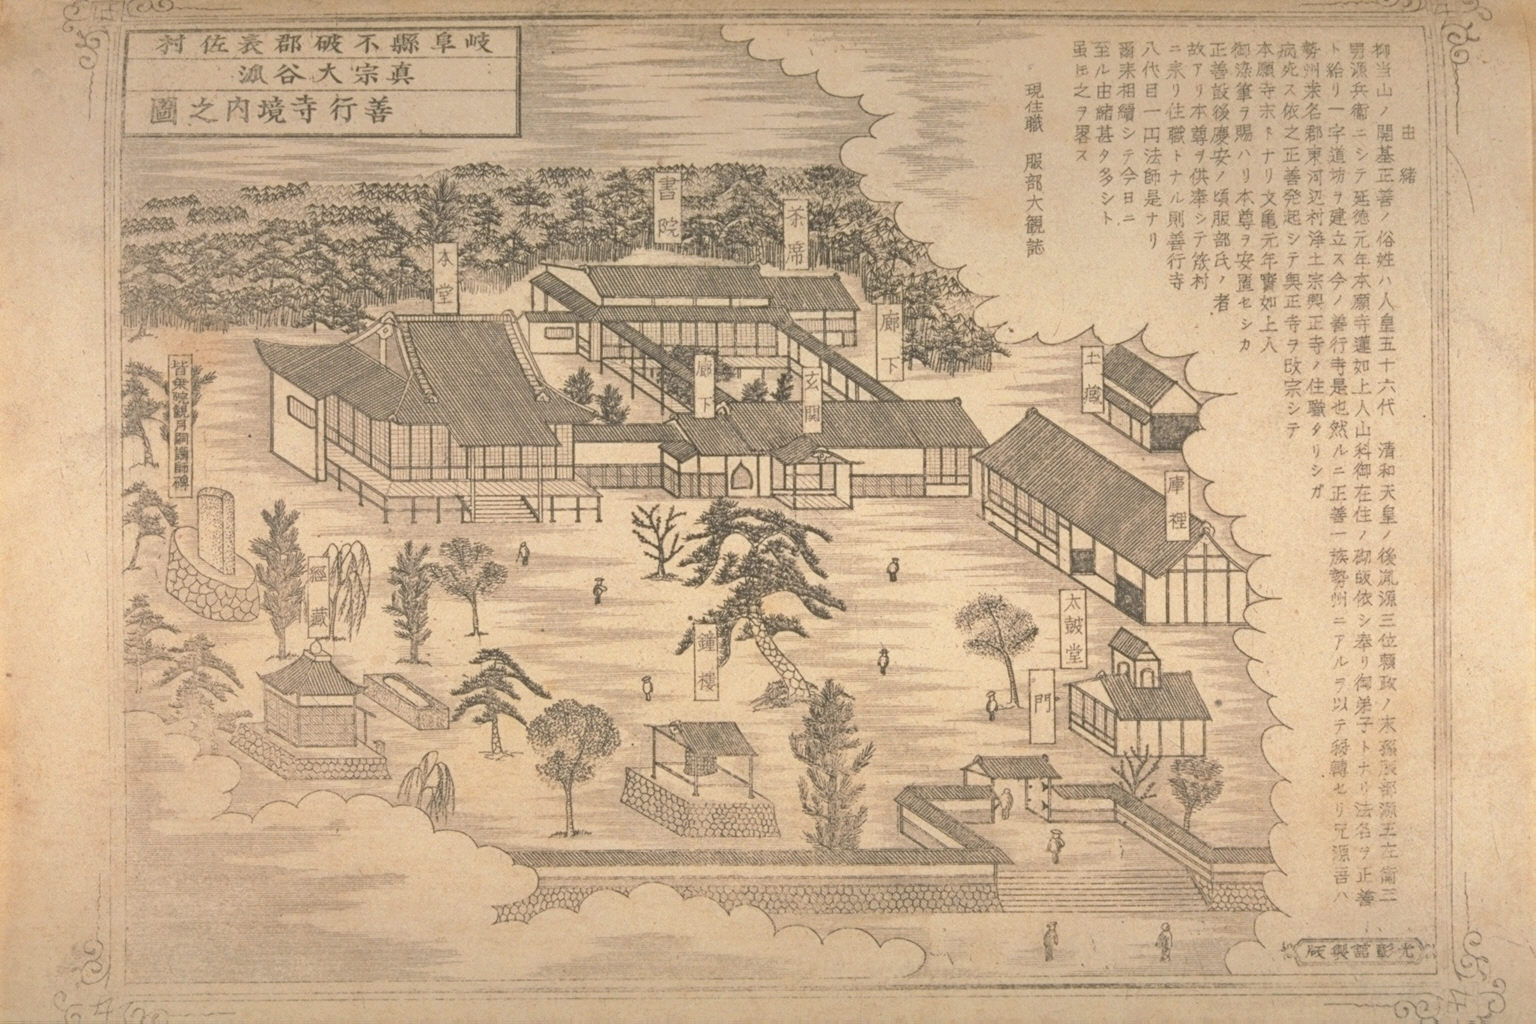 岐阜縣不破郡表佐村
真宗大谷派
善行寺境内之圖
由緒
抑当山ノ開基正善ノ俗姓ハ人皇五十六代 清和天皇ノ後胤源三位頼政ノ末孫服部源五左衛三
男源兵衛ニシテ延徳元年本願寺蓮如上人山科御在住ノ砌皈依シ奉リ御弟子トナリ法名ヲ正善
ト給リ一宇道坊ヲ建立ス今ノ善行寺是也然ルニ正善一族勢州ニアルヲ以テ移轉セリ兄源吾ハ
勢州桒名郡東河辺村浄土宗興正寺ノ住職タリシガ
病死ス依之正善発起シテ興正寺ヲ改宗シテ
本願寺末トナリ文亀元年實如上人
御染筆ヲ賜ハリ本尊ヲ安置セシカ
正善設後慶安ノ頃服部氏ノ者
故アリ本尊ヲ供奉シテ故村
ニ来リ住職トナル則善行寺
八代目一円法師是ナリ
爾来相續シテ今日ニ
至ル由緒甚タ多シト
虽𪜈之ヲ畧ス
現住職 服部大観誌
書院
茶席
本堂
廊下
廊下
玄関
土蔵
庫裡
皆乗院観月嗣講師碑
經蔵
鐘樓
太鼓堂
門
光彰舘製版